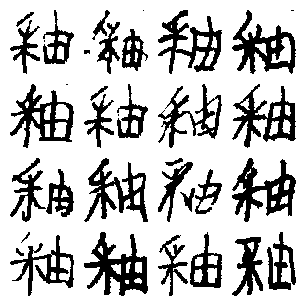 釉釉釉釉
釉釉釉釉
釉釉釉釉
釉釉釉釉